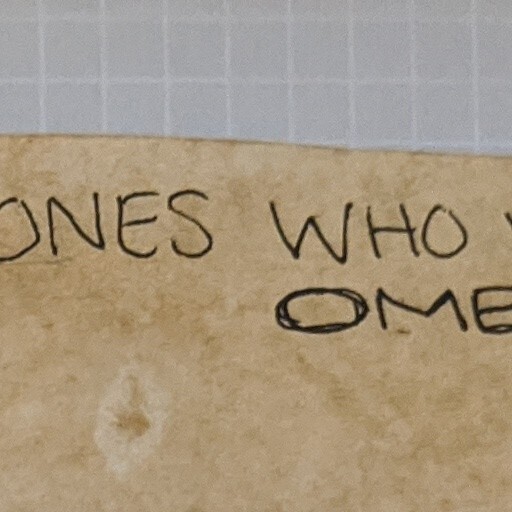 ONES WHO
OME